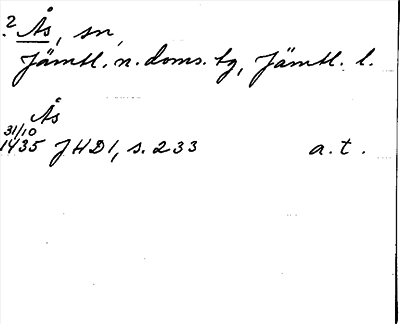 ? Ås, sn,
Jämtl. n. doms. tg, Jämtl. l.
Ås
31/10
1435 JHD1, s. 233 a. t.